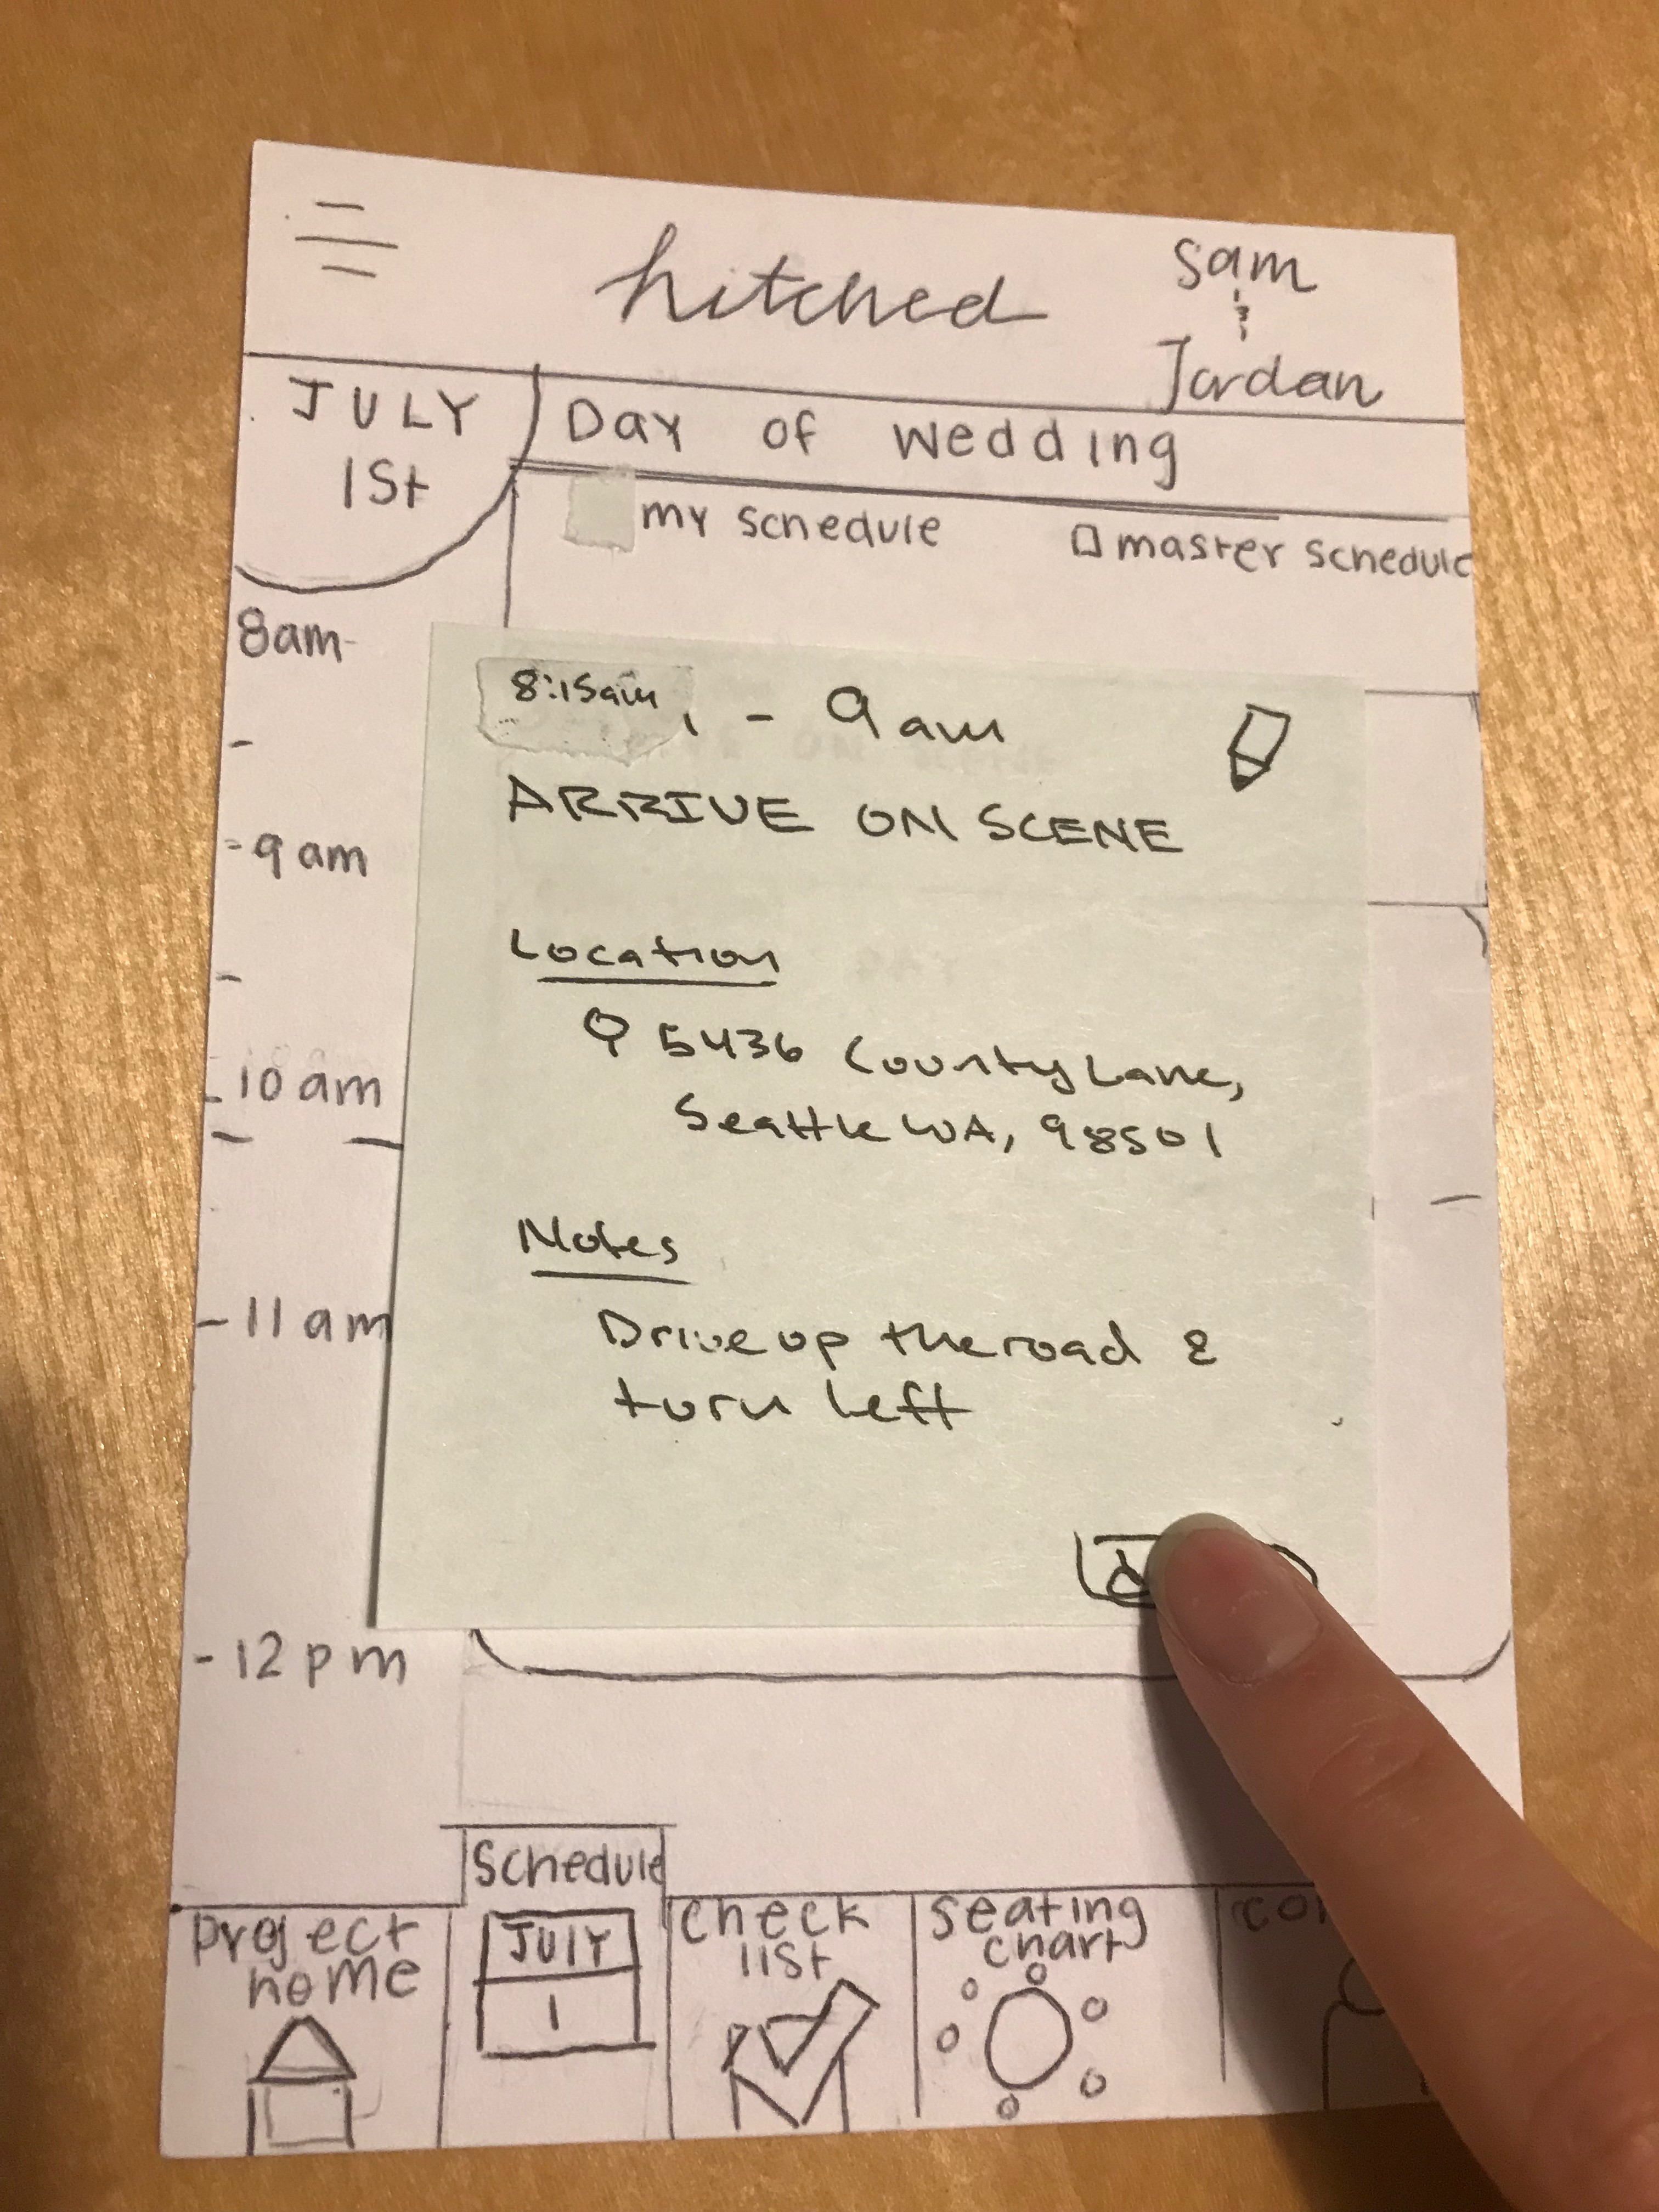 hitched
Sam
&
Jordan
JULY
1st
Day of wedding
my schedule
master schedule
8am
8:15am - 9am
ARRIVE ON SCENE
9am
Location
5436 County Lane,
Seattle WA, 98501
10am
Notes
Drive up the road &
turn left
11am
12pm
project
home
Schedule
JULY
1
check
list
seating
chart